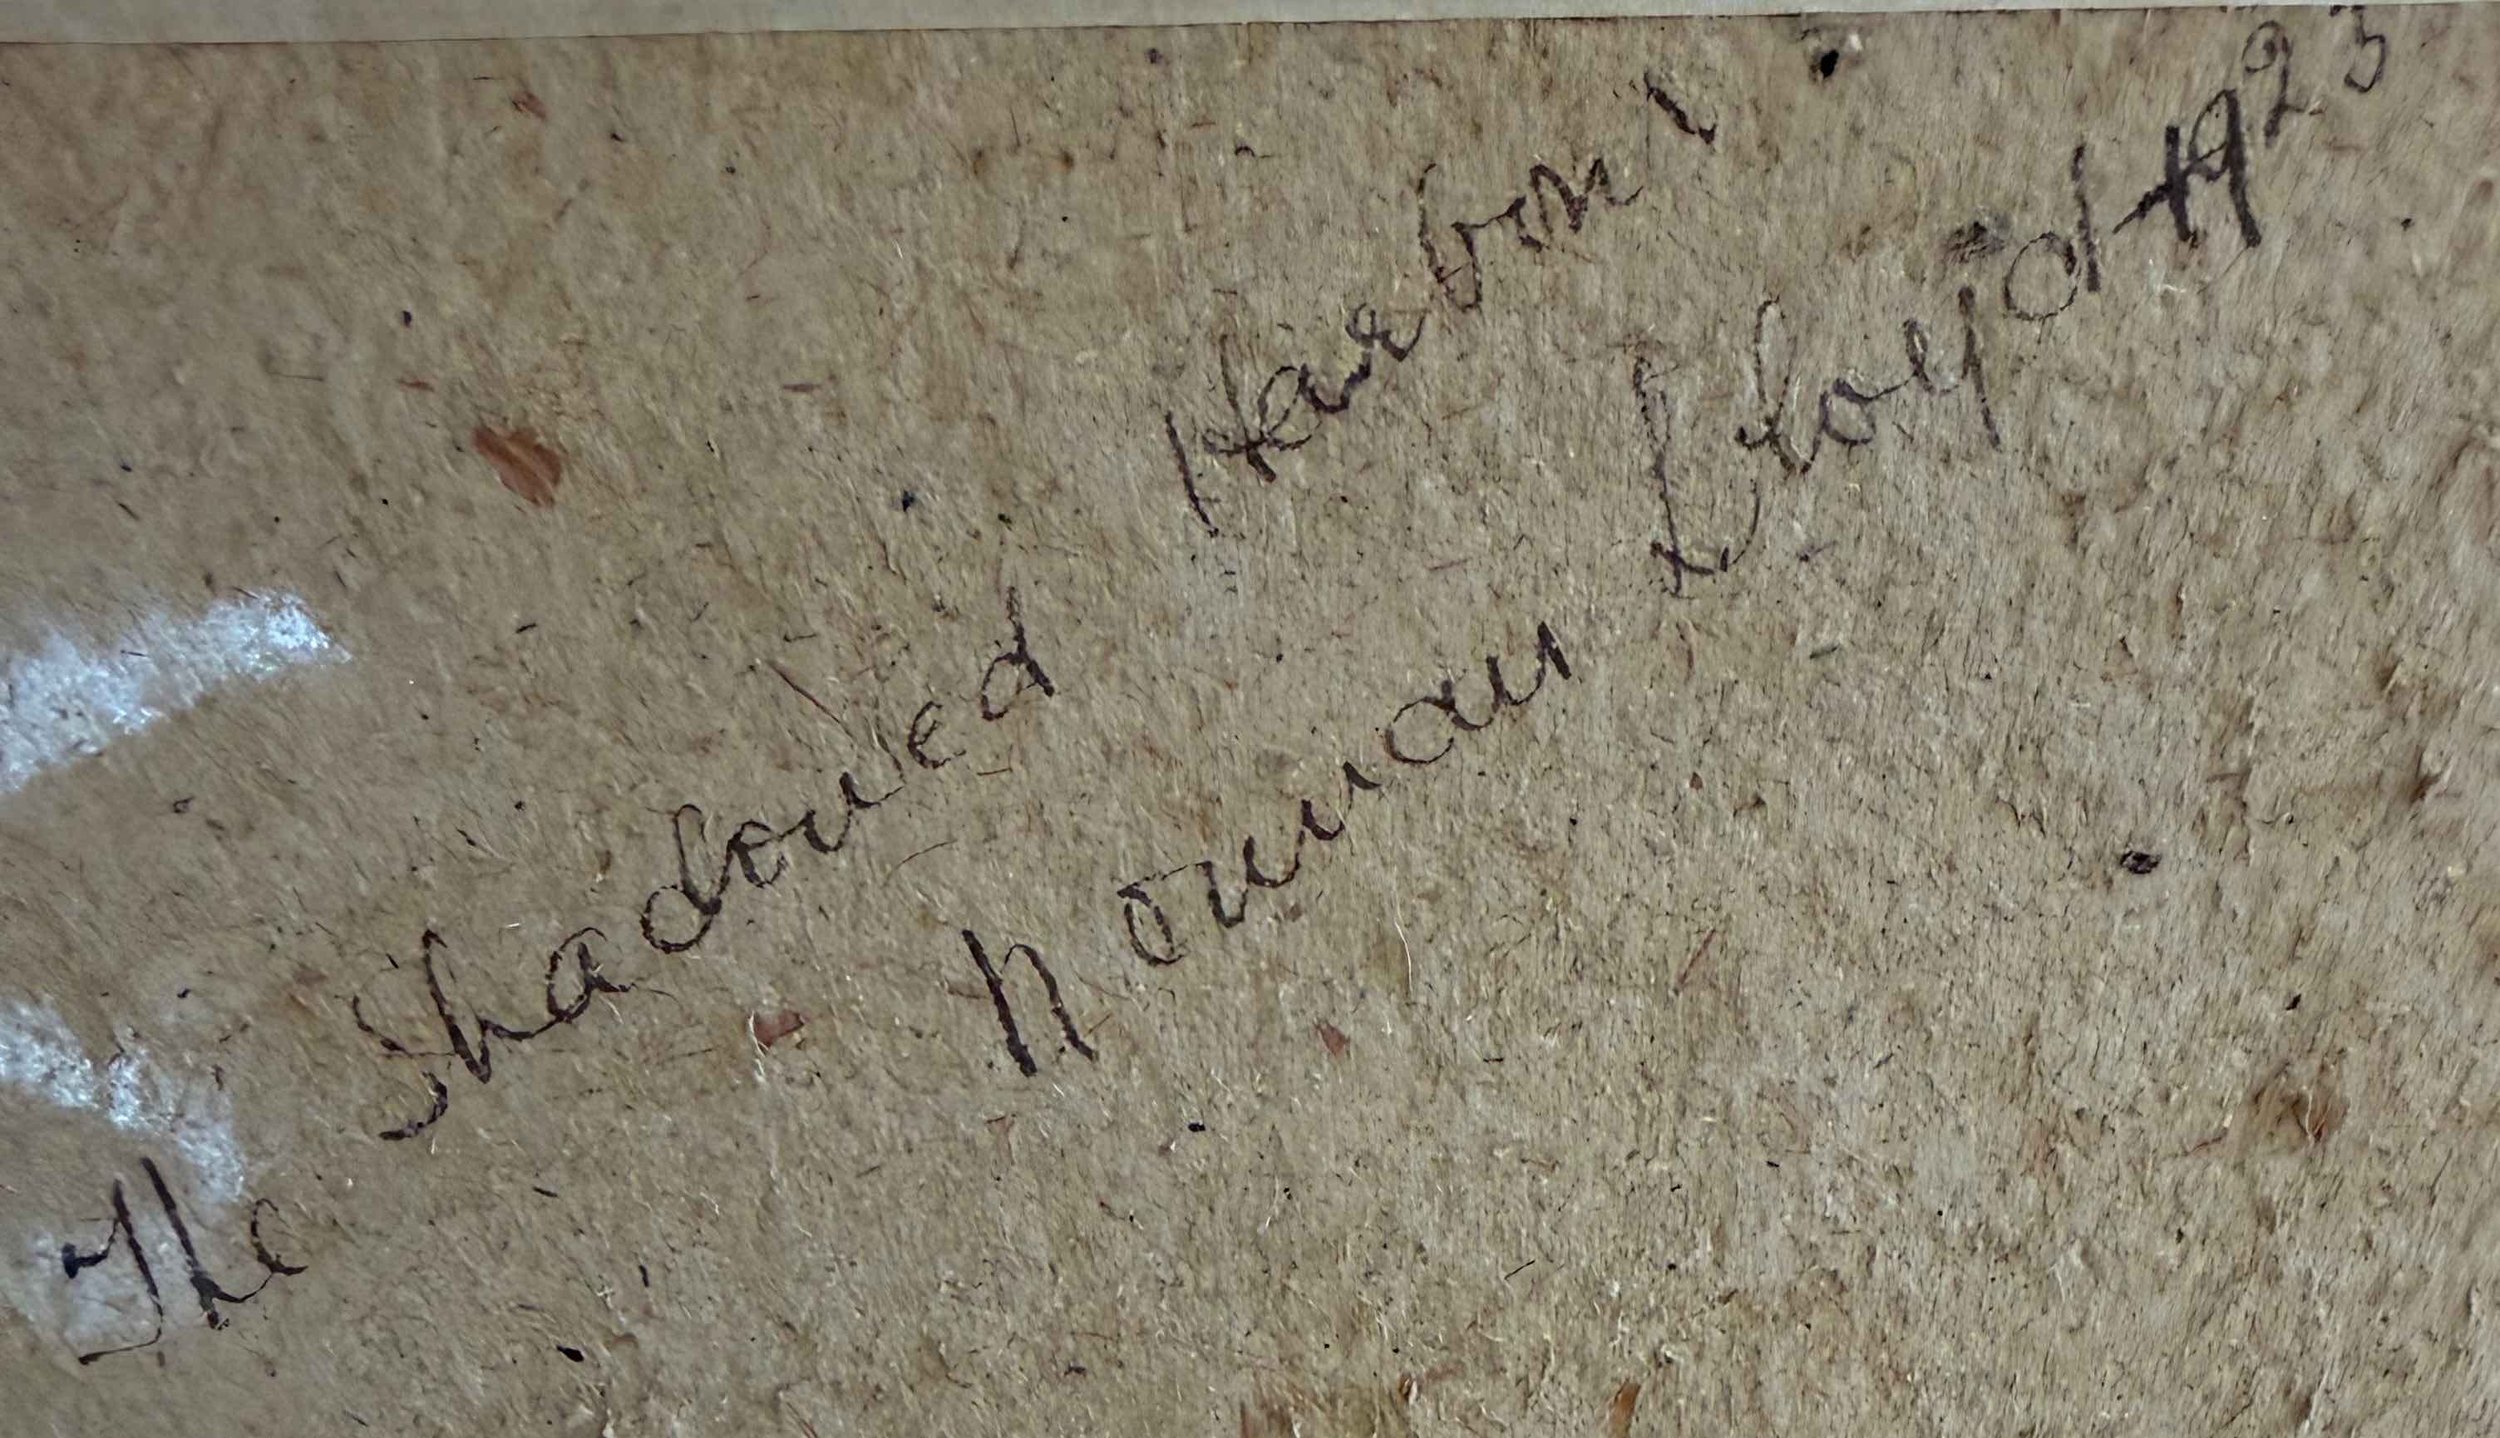 The Shadowed Harbour
Norman Lloyd 1923